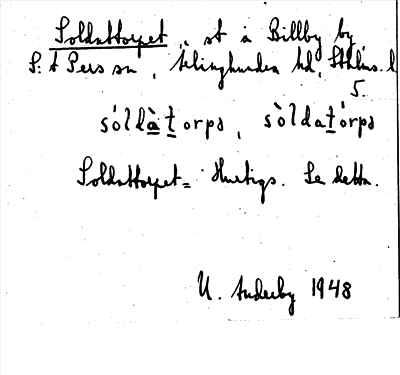 Soldattorpet, st å Billby by,
S:t Pers sn, Seminghundra hd, Sthlms. l
5.
sòldàtorpə, sòldatórpə
Soldattorpet = Hurtigs. Se detta.
U. Anderby 1948